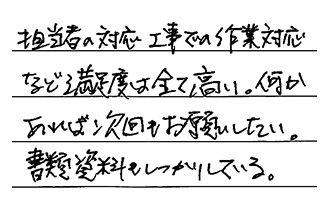 担当者の対応 工事での作業対応
など満足度は全て高い。何か
あれば次回もお願いしたい。
書類資料もしっかりしている。